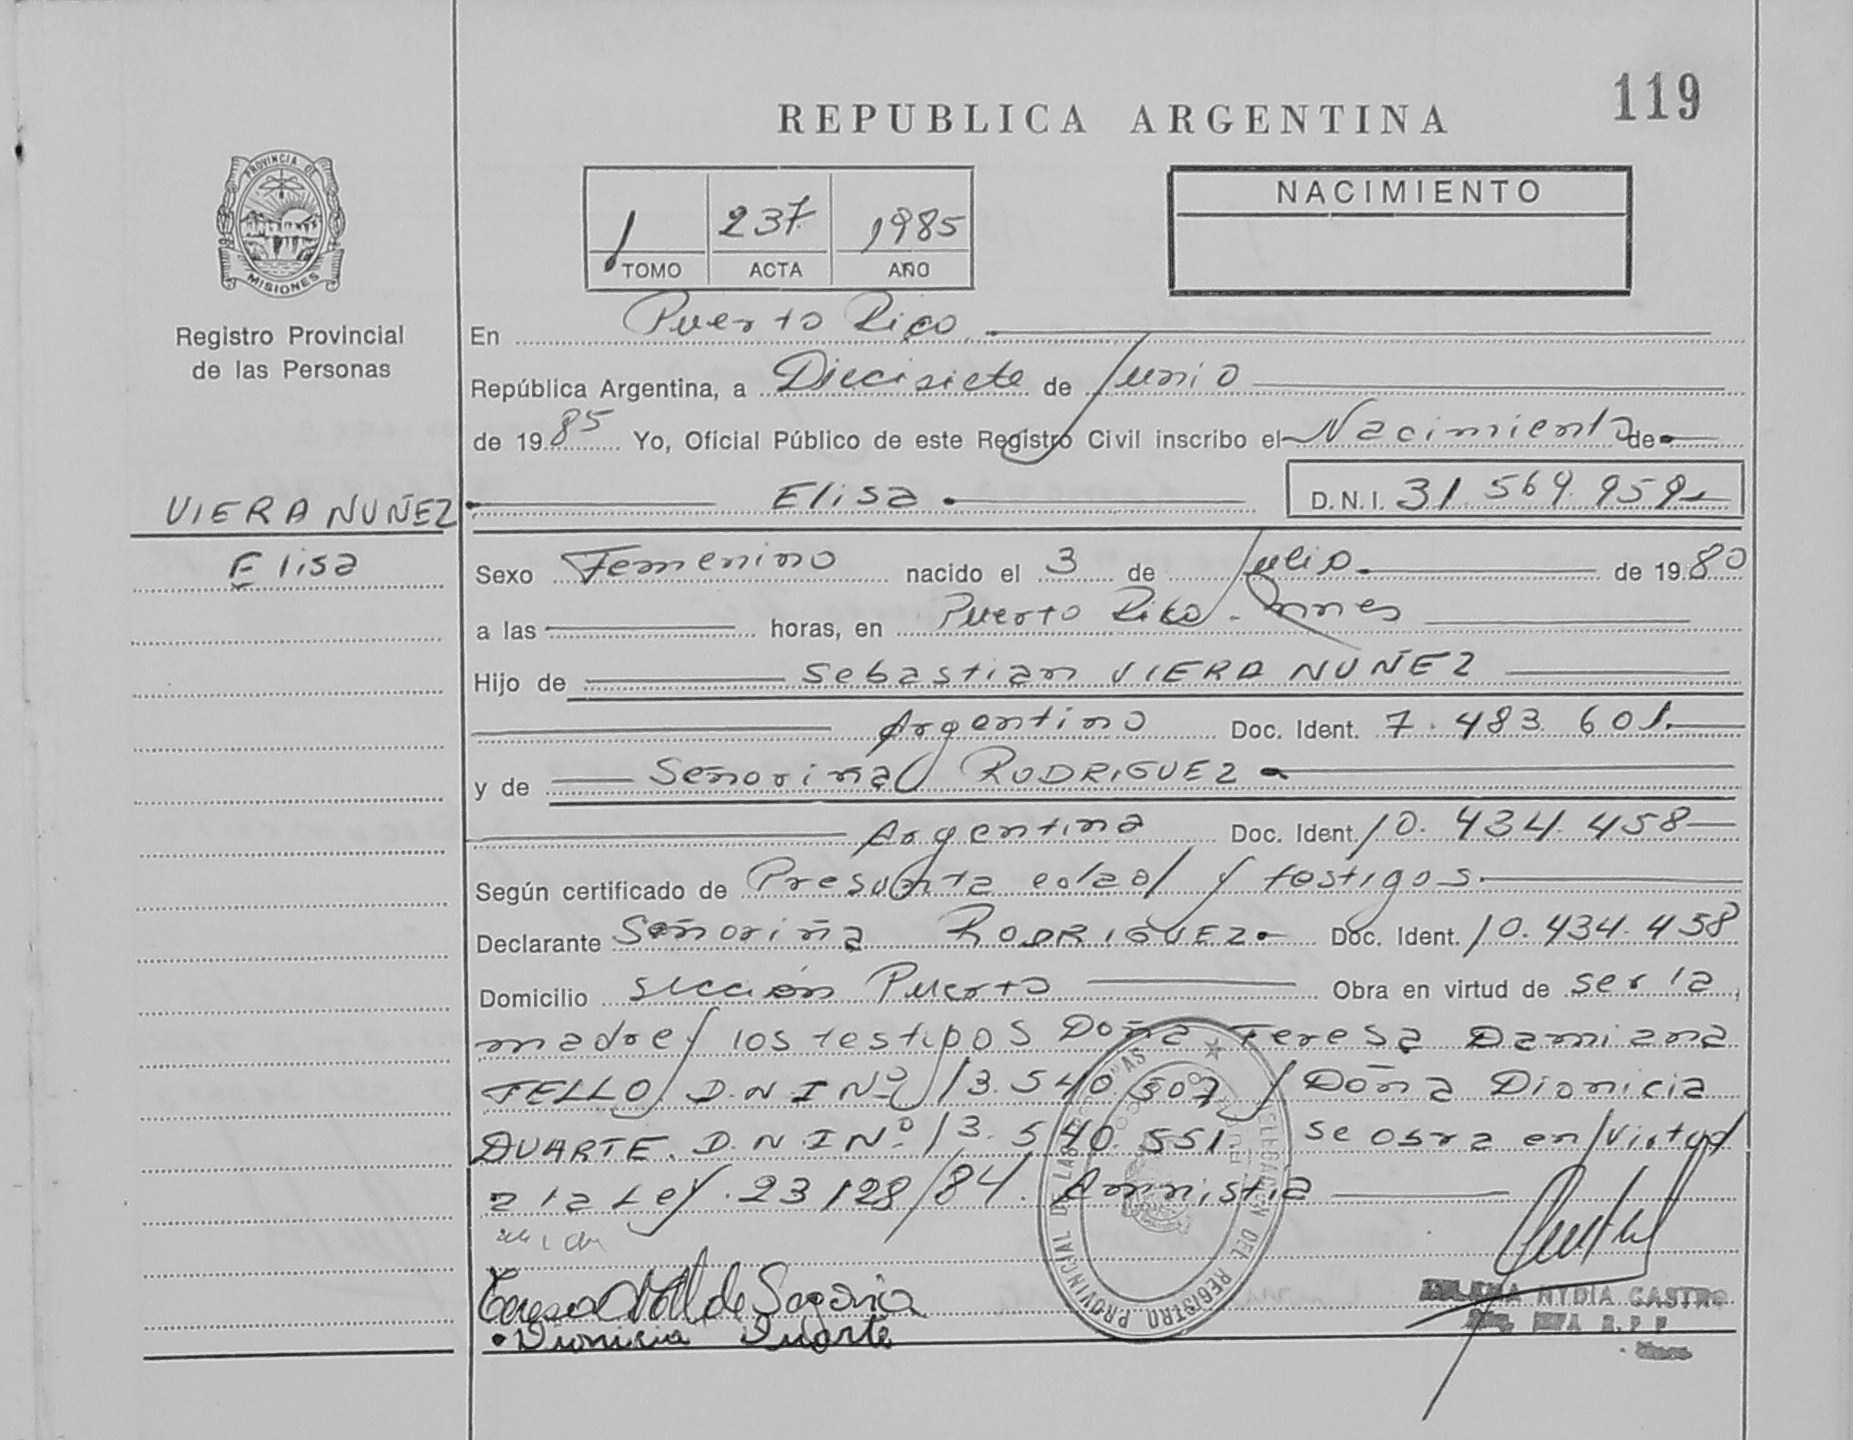 119
REPUBLICA ARGENTINA
PROVINCIA DE
MISIONES
Registro Provincial
de las Personas
1 237 1985
TOMO ACTA AÑO
NACIMIENTO
En Puerto Rico
República Argentina, a Diecisiete de Junio
de 1985 Yo, Oficial Público de este Registro Civil inscribo el Nacimiento de
VIERA NUÑEZ
Elisa
Elisa D.N.I. 31.569.959
Sexo Femenino nacido el 3 de Julio de 1980
a las horas, en Puerto Rico - Mnes
Hijo de Sebastian VIERA NUÑEZ
Argentino Doc. Ident. 7.483.601
y de Señoriña RODRIGUEZ
Argentina Doc. Ident. 10.434.458
Según certificado de Presunta edad y testigos
Declarante Señoriña RODRIGUEZ Doc. Ident. 10.434.458
Domicilio sección Puerto Obra en virtud de ser la
madre y los testigos Doña Teresa Damiana
TELLO D.N.I Nº 13.540.507 y Doña Dionicia
DUARTE. D.N.I Nº 13.540.551. Se obra en virtud
a la Ley. 23128/84. Amnistia
Teresa de Sagovia
Dionicia Duarte
NYDIA CASTRO
DELEGACION DEL REGISTRO PROVINCIAL DE LAS PERSONAS